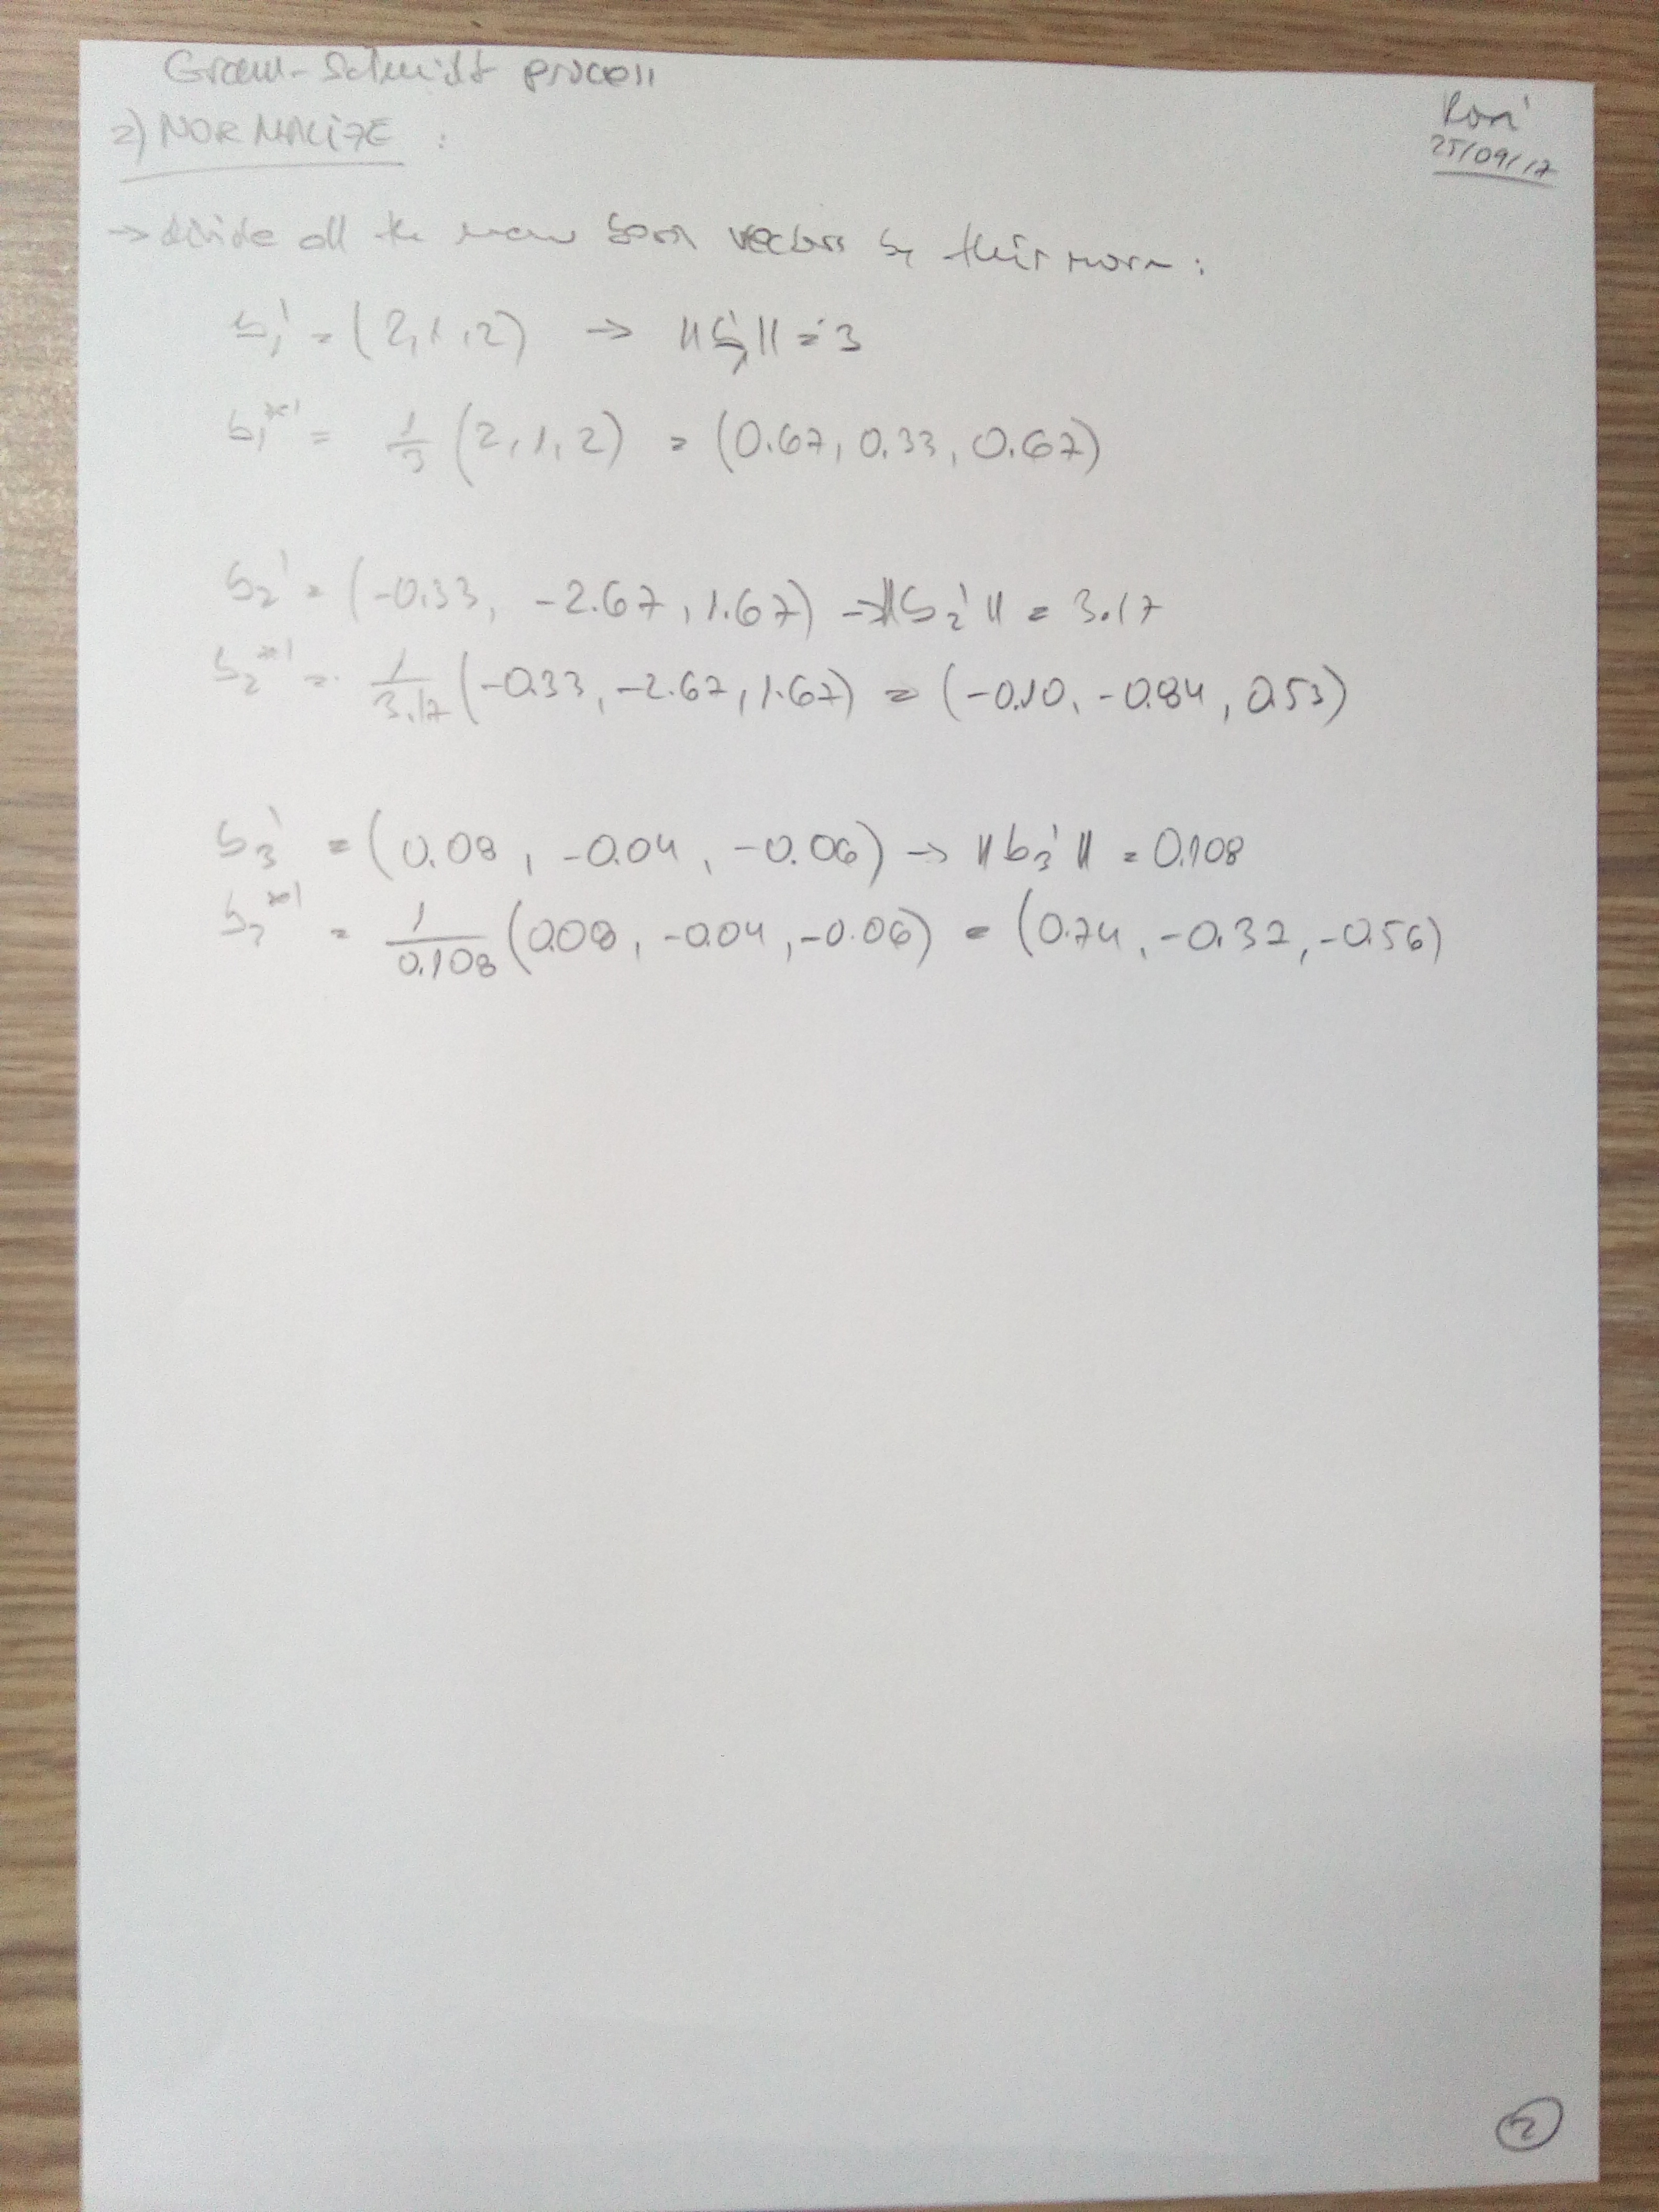 Gram-Schmidt process
Roni
25/09/17
2) NORMALIZE :
→ divide all the new basis vectors by their norm :
b₁' = (2,1,2) → ||b₁'|| = 3
b₁*' = 1/3 (2,1,2) = (0.67, 0.33, 0.67)
b₂' = (-0.33, -2.67, 1.67) → ||b₂'|| = 3.17
b₂*' = 1/3.17 (-0.33, -2.67, 1.67) = (-0.10, -0.84, 0.53)
b₃' = (0.08, -0.04, -0.06) → ||b₃'|| = 0.108
b₃*' = 1/0.108 (0.08, -0.04, -0.06) = (0.74, -0.37, -0.56)
2